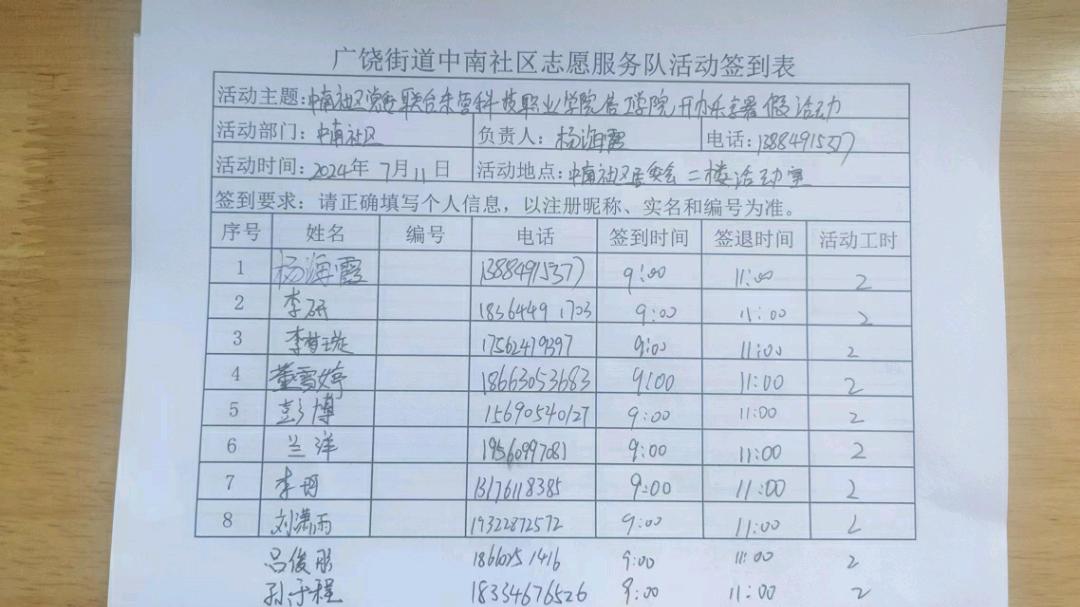 广饶街道中南社区志愿服务队活动签到表
活动主题：中南社区党委联合东营科技职业学院管工学院开办乐享暑假活动
活动部门：中南社区 负责人：杨海霞 电话：13884915377
活动时间：2024年7月11日 活动地点：中南社区居委会二楼活动室
签到要求：请正确填写个人信息，以注册昵称、实名和编号为准。
序号 姓名 编号 电话 签到时间 签退时间 活动工时
1 杨海霞 13884915377 9:00 11:00 2
2 李研 18364491703 9:00 11:00 2
3 李梦璇 17562479397 9:00 11:00 2
4 董雪婷 18663053683 9:00 11:00 2
5 彭博 15690540127 9:00 11:00 2
6 兰洋 19560997081 9:00 11:00 2
7 李珂 13176118385 9:00 11:00 2
8 刘潇雨 19322872572 9:00 11:00 2
吕俊彤 9:00 11:00 2
孙于程 18334676526 9:00 11:00 2